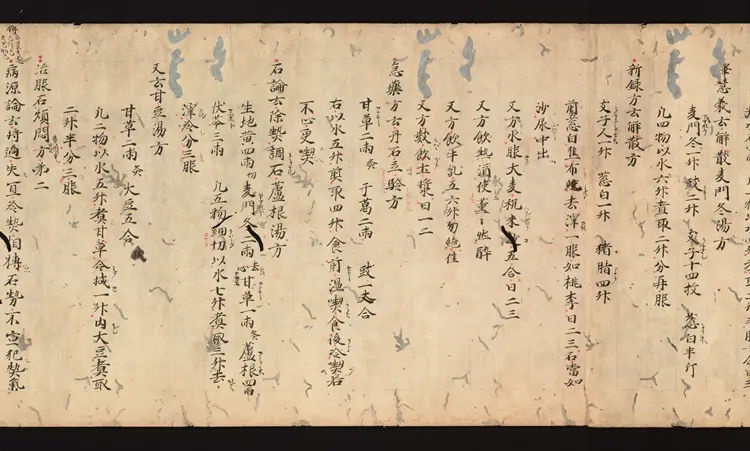 慧義云解散麦門冬湯方
麦門冬一升 豉二升 支子十四枚 葱白半斤
凡四物以水六升煮取二升分再服
新録方云解散方
支子人一升 葱白一升 猪脂四升
煎葱白焦布絞去滓一服如桃李日二三石當如
沙尿中出
又方水服大麦麨米四五合日二三
又方飲熱酒使薫〻然醉
又方飲羊乳五六升勿絶佳
又方數飲土漿日一二
急藥方云丹石三驗方
甘草二兩炙 干葛二兩 豉一大合
右以水五升煎取四升食前温喫食後冷喫若
不止更喫
石論云除熱調石蘆根湯方
生地黄四兩切 麦門冬二兩去心 甘草一兩炙 蘆根四兩
伏苓三兩 凡五物細切以水七升煮取三升去
滓冷分三服
又云甘豆湯方
甘草一兩炙 大豆五合
凡二物以水五升煮甘草令減一升内大豆煮取
二升半分三服
治服石煩悶方第二
病源論云將適失宜冷熱相搏石勢不宣犯熱氣